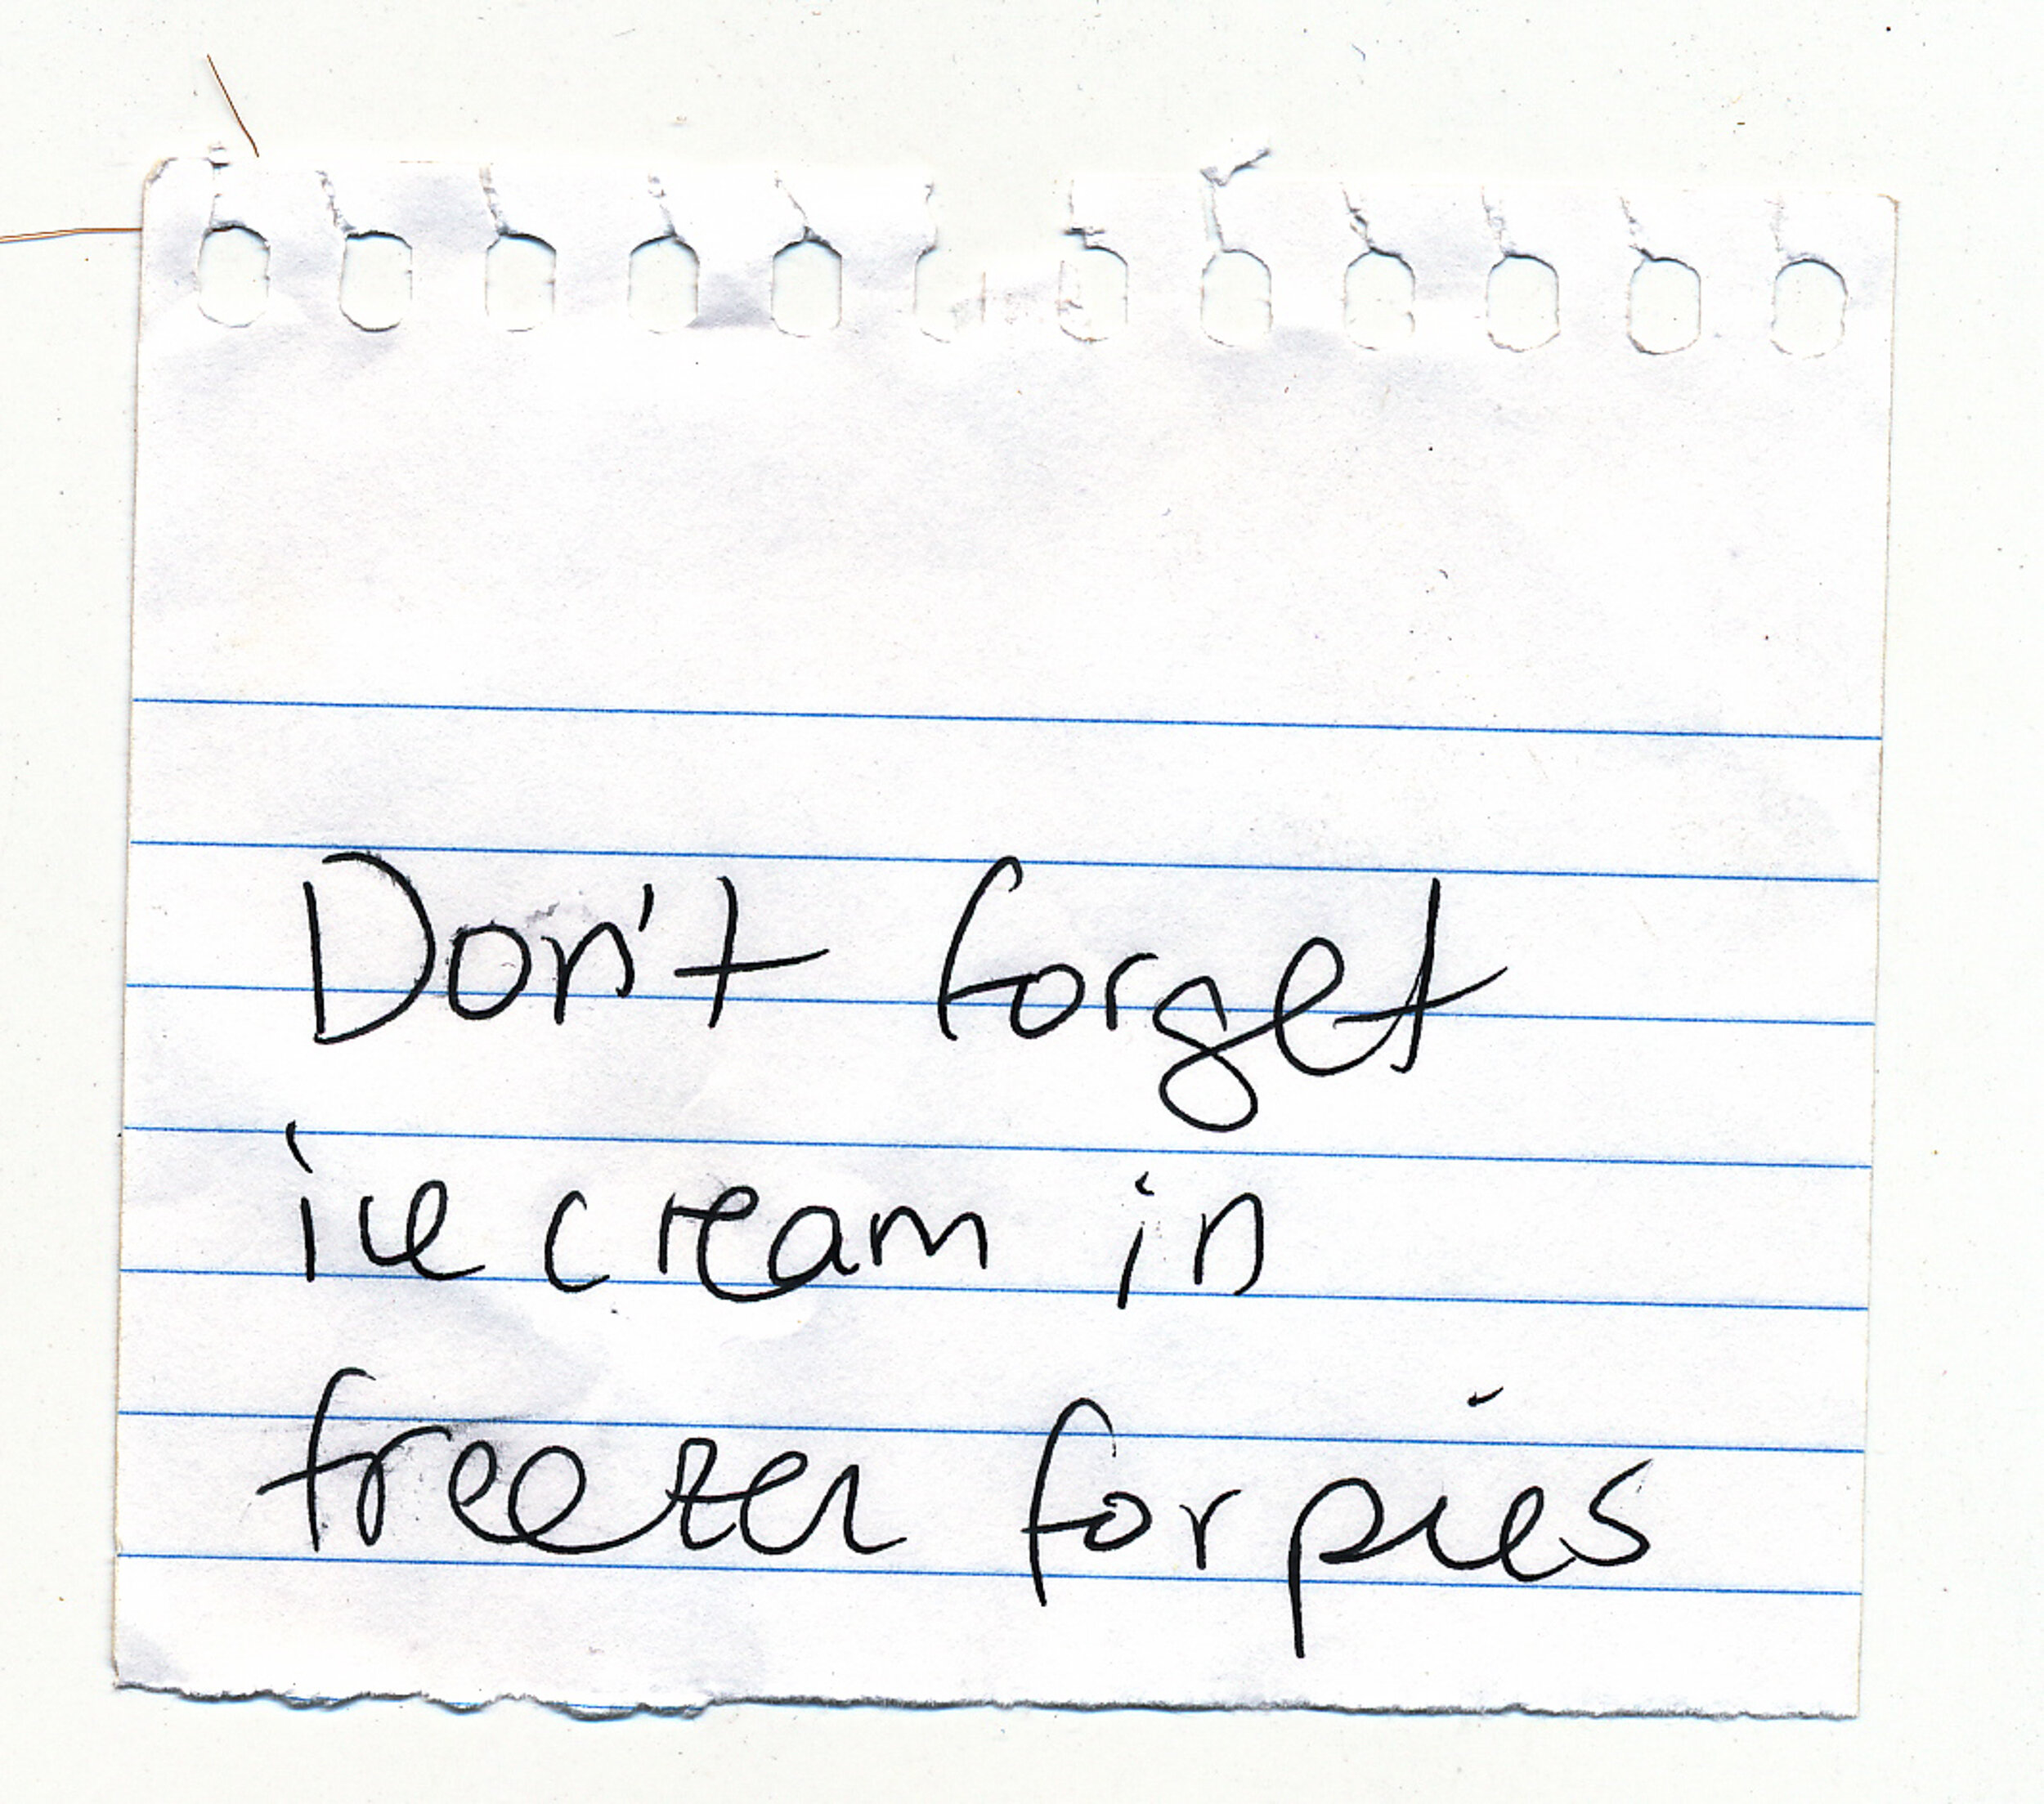 Don't forget
ice cream in
freezer for pies